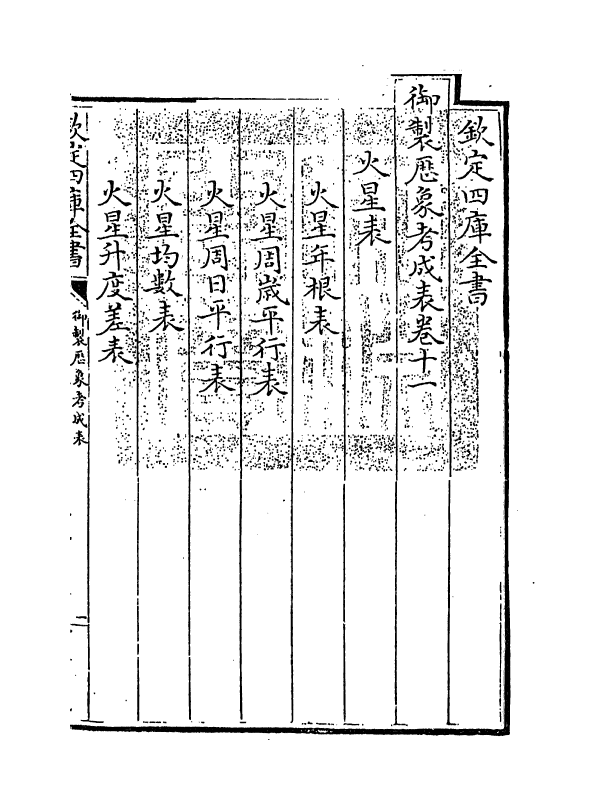 欽定四庫全書
御製厯象考成表卷十一
火星表
火星年根表
火星周歲平行表
火星周日平行表
火星均數表
火星升度差表
欽定四庫全書
御製厯象考成表
一